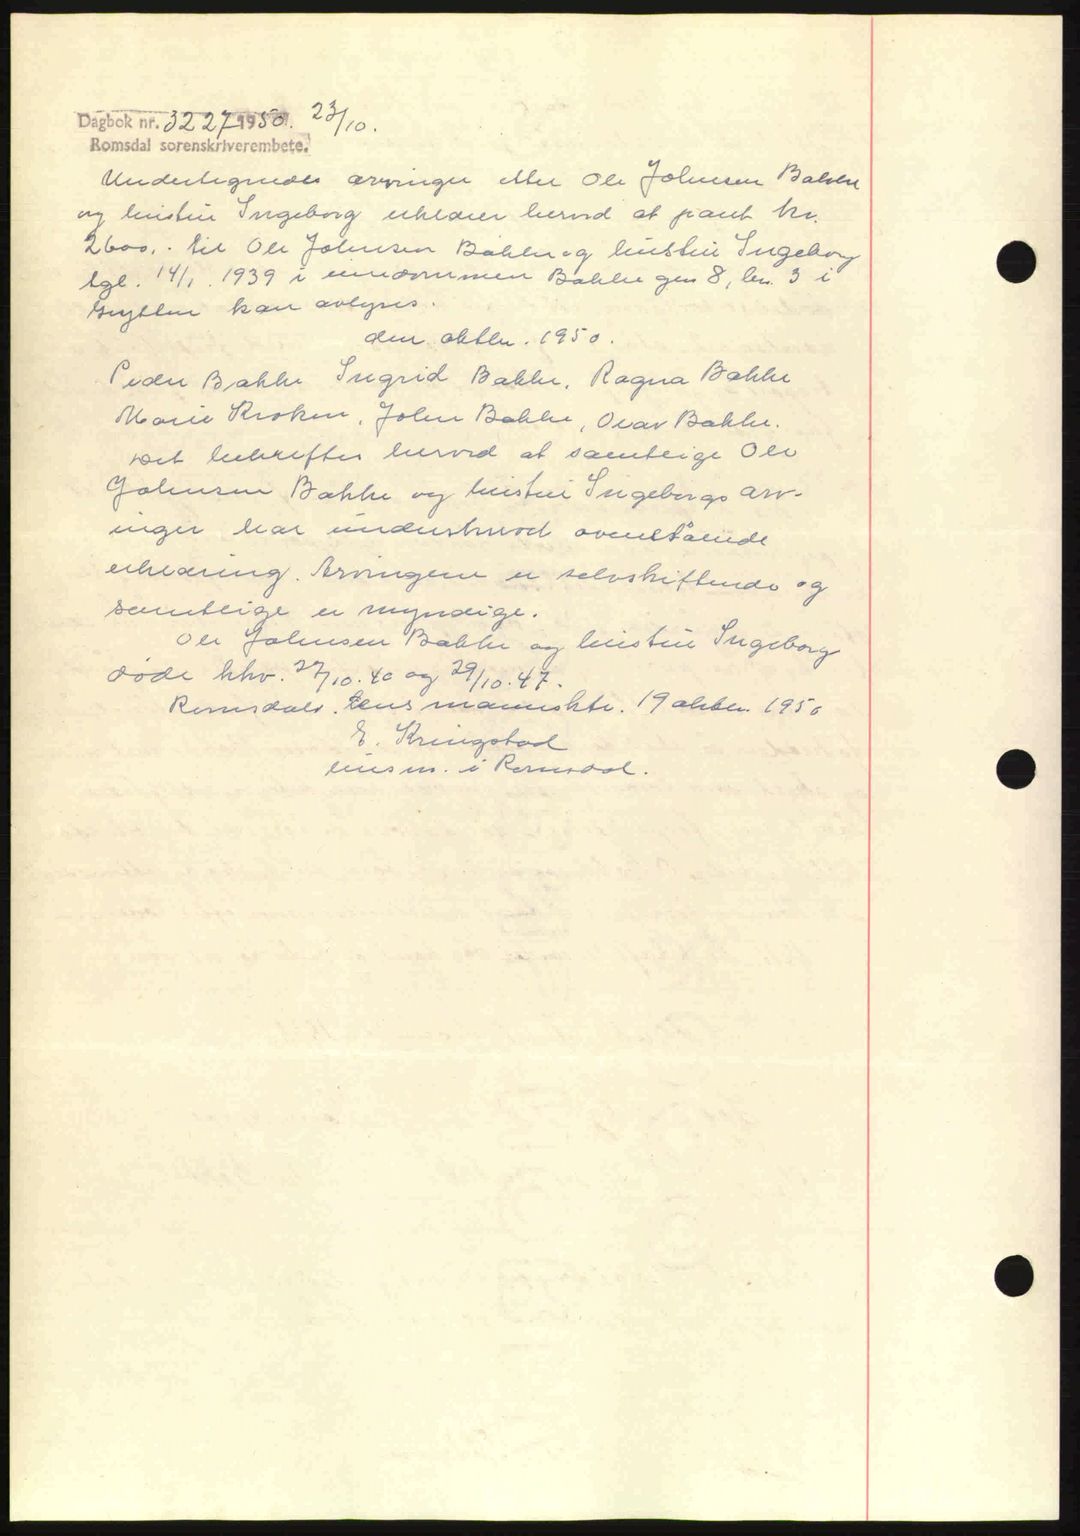 Dagbok nr. 3227 1950. 23/10.
Romsdal sorenskriverembete.
Undertegnede arvinger etter Ole Johnsen Bakke
og hustru Ingeborg erklærer herved at pant kr.
2600,- til Ole Johnsen Bakke og hustru Ingeborg
tgl. 14/1. 1939 i eiendommen Bakke gnr 8, bnr. 3 i
Grytten kan avlyses.
den oktbr. 1950.
Peder Bakke Ingrid Bakke, Ragna Bakke
Marie Kroken, John Bakke, Olav Bakke.
Det bekreftes herved at samtlige Ole
Johnsen Bakke og hustru Ingeborgs arv-
inger har underskrevet ovenstående
erklæring. Arvingene er selvskiftende og
samtlige er myndige.
Ole Johnsen Bakke og hustru Ingeborg
døde hhv. 27/10.40 og 29/10.47.
Romsdals lensmannsktr. 19 oktbr. 1950
E. Kringstad
lensm. i Romsdal.